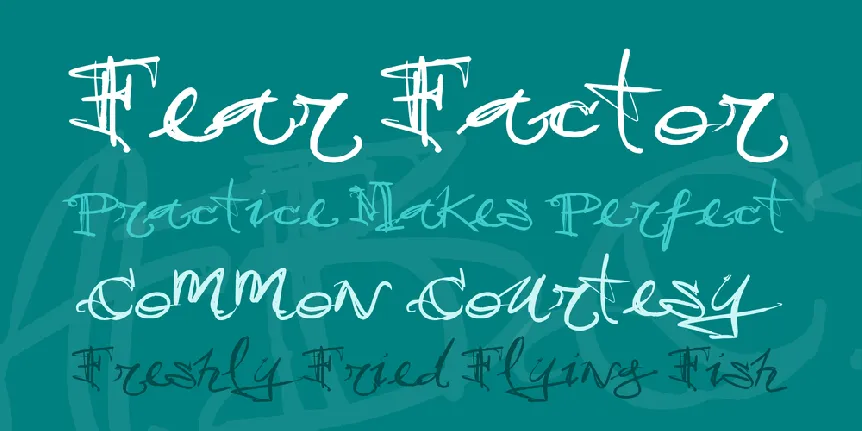 Fear Factor
Practice Makes Perfect
Common Courtesy
Freshly Fried Flying Fish
ABC